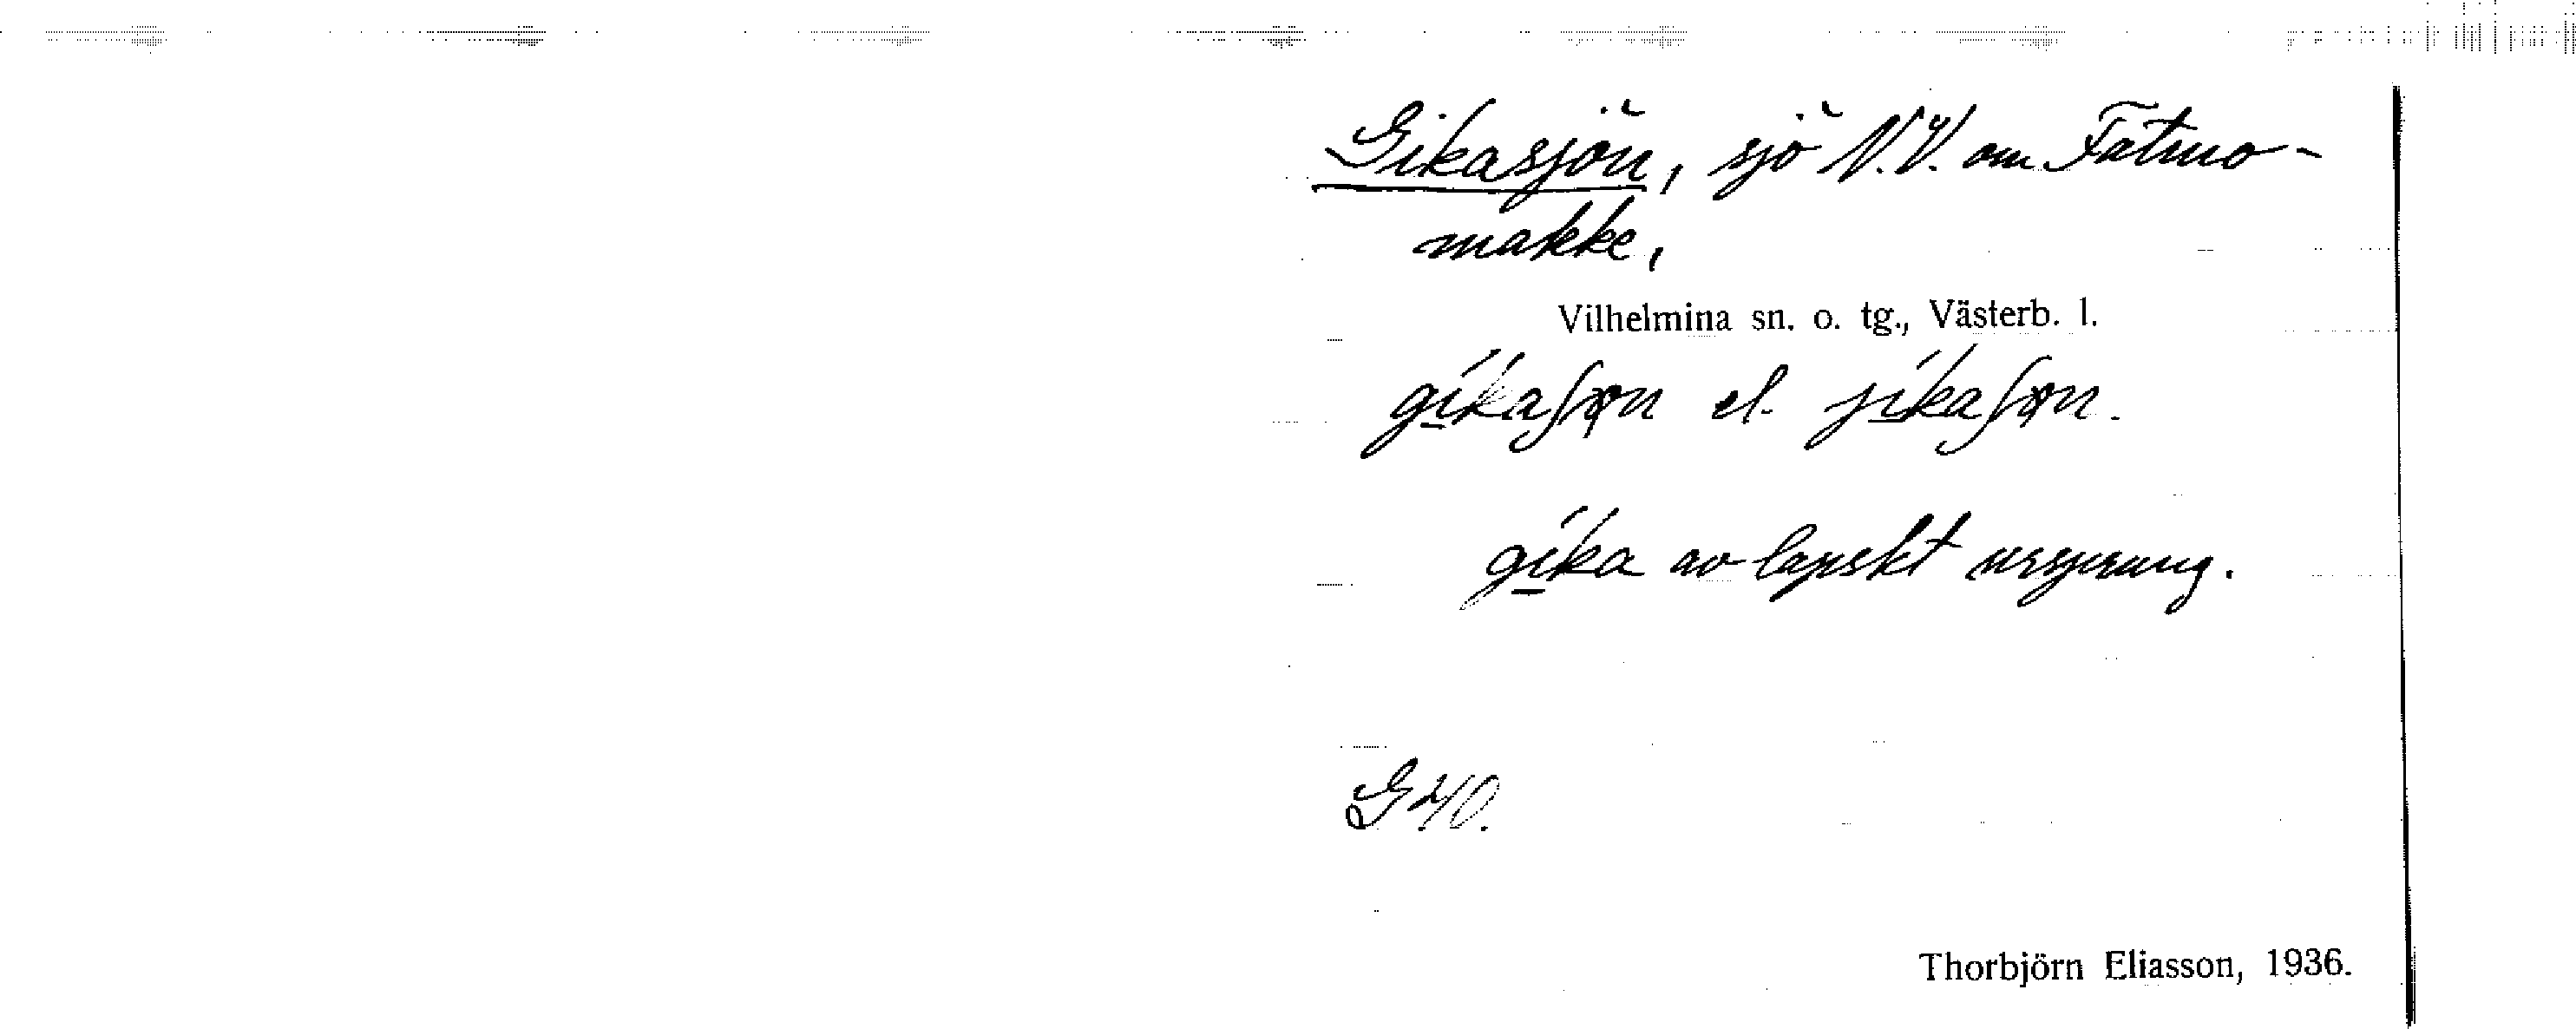 Gikasjön, sjö N.V. om Fatmo-
makke,
Vilhelmina sn. o. tg., Västerb. l.
gi̱kaʃøn el. ji̱kaʃøn.
gi̱ka av lapskt ursprung.
G 40.
Thorbjörn Eliasson, 1936.